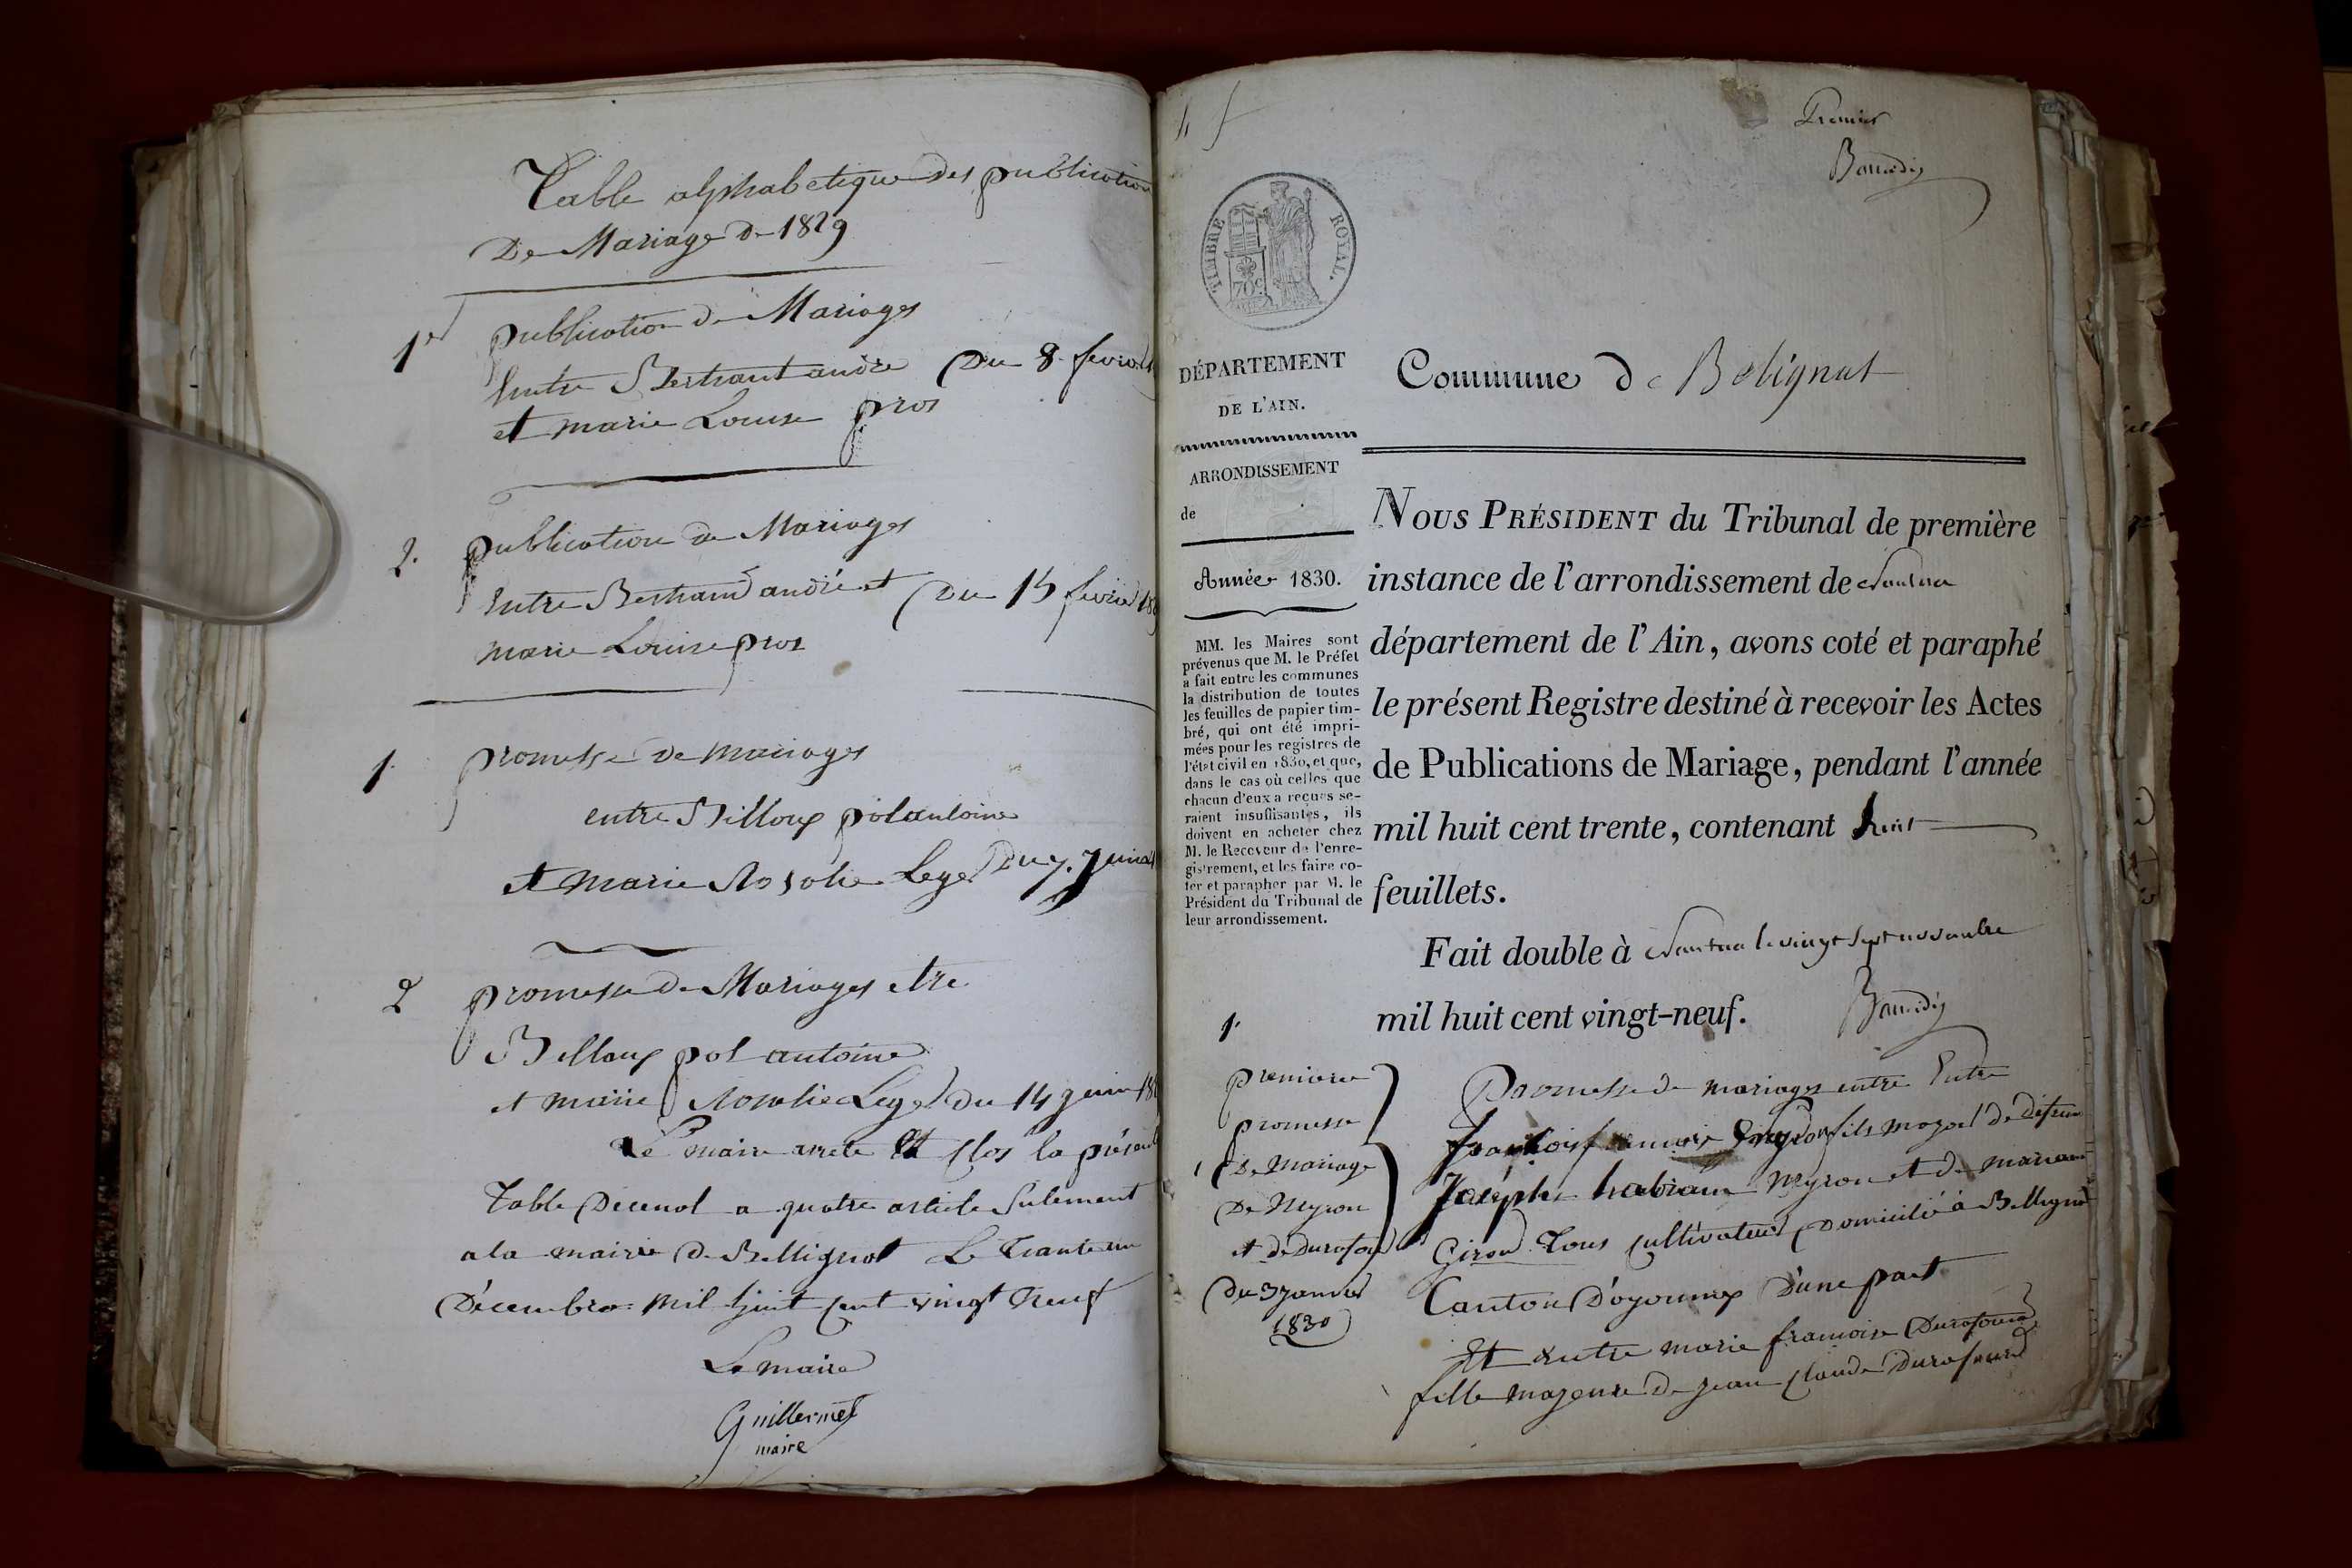 Table alphabetique des publication
De Mariage De 1829
1er publication de Mariages
Entre Bertrant andré Du 8 fevrier
et marie Louise pros
2. publication de Mariages
Entre Bertrand andré et Du 15 fevrier
marie Louise pros
1. promesse de mariages
entre Billoux pol antoine
et marie Rosolie Leger Du 7 Juin
2 promesse de Mariages etre
Billoux pol antoine
et marie Rosolie Leger du 14 juin
Le maire arrete et clos la présent
Table Décenol a quatre article Sulement
a la mairie de Bellignat Le Trante un
Décembre mil huit cent vingt neuf
Le maire
Guillermet
maire
Premier
TIMBRE ROYAL.
70c.
DÉPARTEMENT
DE L'AIN.
ARRONDISSEMENT
de
Année 1830.
MM. les Maires sont
prévenus que M. le Préfet
a fait entre les communes
la distribution de toutes
les feuilles de papier tim-
bré, qui ont été impri-
mées pour les registres de
l'état civil en 1830, et que,
dans le cas où celles que
chacun d'eux a reçues se-
raient insuffisantes, ils
doivent en acheter chez
M. le Receveur de l'enre-
gistrement, et les faire co-
ter et parapher par M. le
Président du Tribunal de
leur arrondissement.
Commune de Belignat
NOUS PRÉSIDENT du Tribunal de première
instance de l'arrondissement de Nantua
département de l'Ain, avons coté et paraphé
le présent Registre destiné à recevoir les Actes
de Publications de Mariage, pendant l'année
mil huit cent trente, contenant huit
feuillets.
Fait double à Nantua le vingt sept novembre
mil huit cent vingt-neuf.
1.
premiere
promesse
De Mariage
De Neyron
et de Durafour
Du 3 janvier
1830
Promesse de mariages entre Entre
fils mojeur de defun
Joseph Neyron et de
Girod Tous cultivateur Domicilié à Bellignat
Canton D'oyonnax D'une part
Et Entre marie francoise Durafour
fille majeure de jean claude Durafour